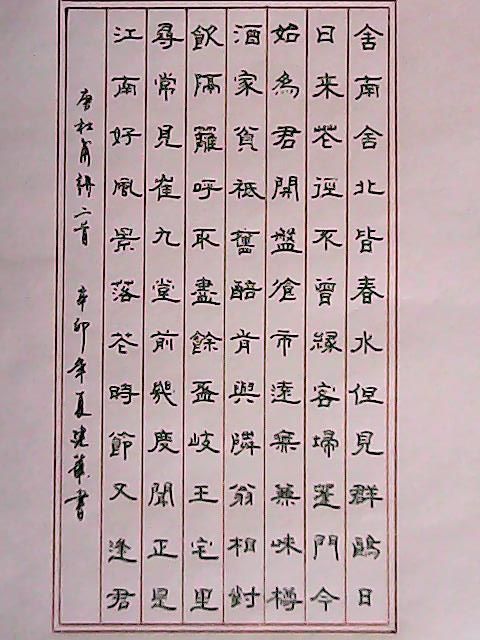 舍南舍北皆春水但見群鷗日
日来花徑不曾緣客埽蓬門今
始為君開盤飧市遠無兼味樽
酒家貧祗舊醅肯與鄰翁相對
飲隔籬呼取盡餘盃岐王宅里
尋常見崔九堂前幾度聞正是
江南好風景落花時節又逢君
唐杜甫詩二首 辛卯年夏建華書